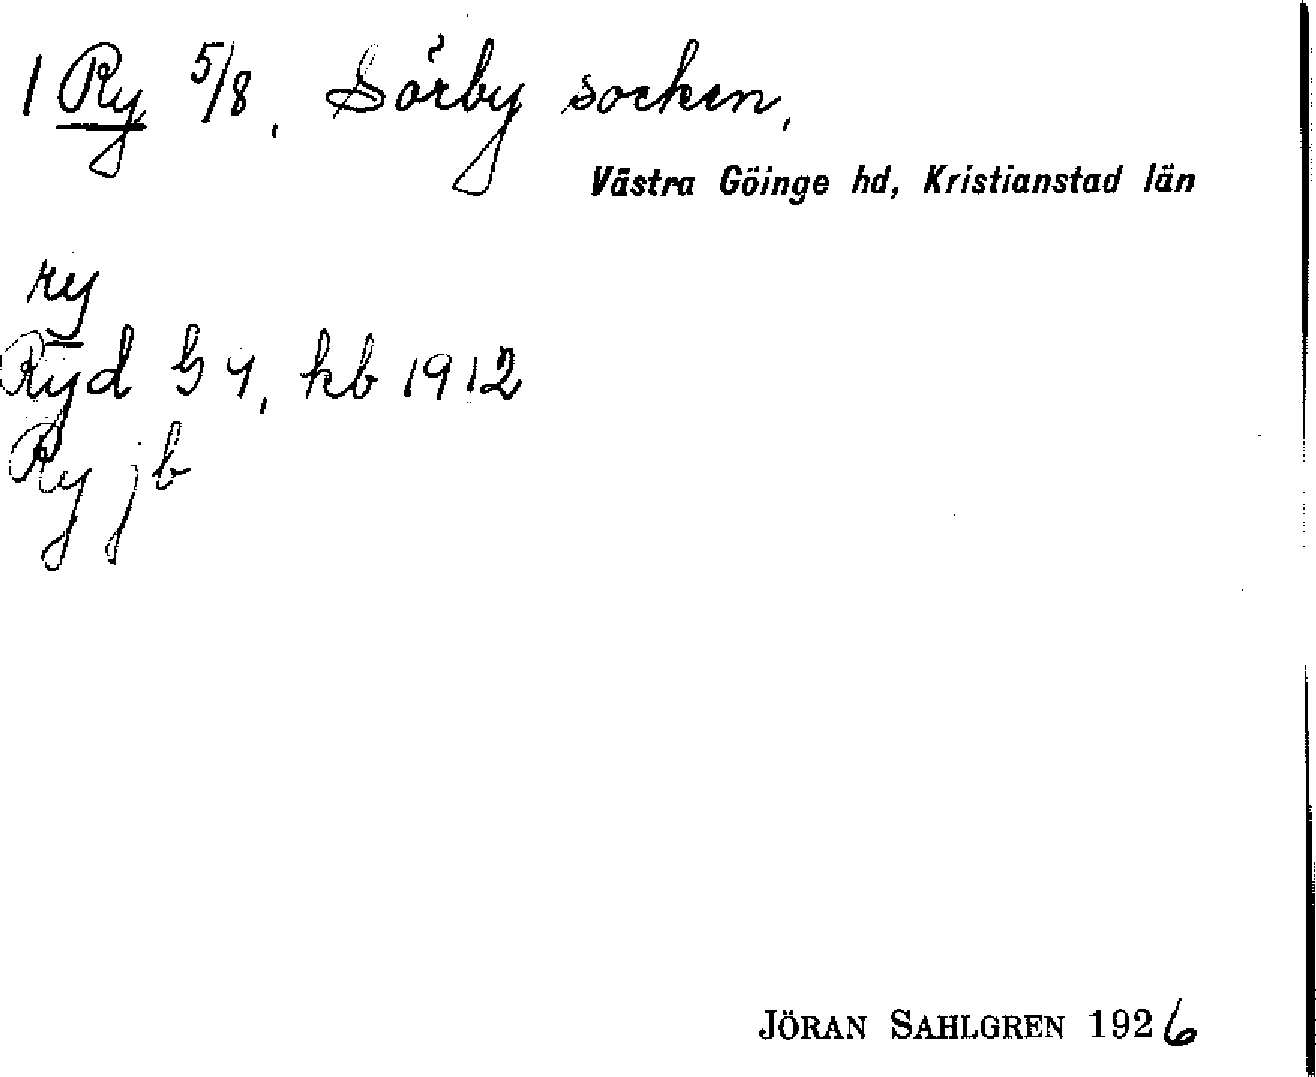 1 Ry 5/8, Sörby socken,
Västra Göinge hd, Kristianstad län
ry
Ryd G 4, kb 1912
Ry jb
JÖRAN SAHLGREN 1926